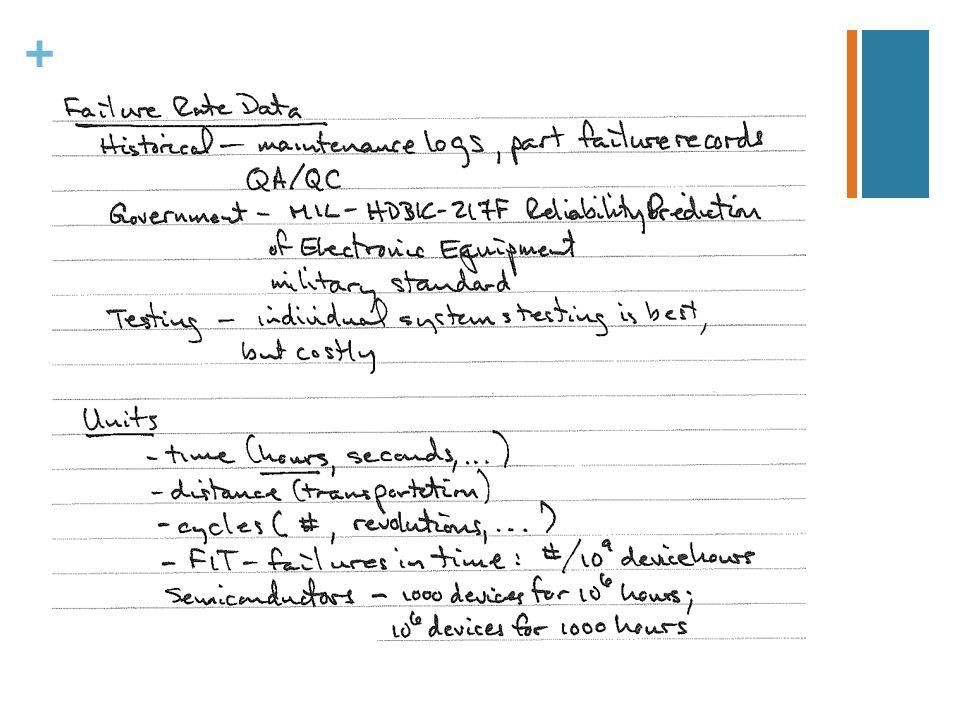 +
Failure Rate Data
Historical – maintenance logs, part failure records
QA/QC
Government – MIL-HDBK-217F Reliability Prediction
of Electronic Equipment
military standard
Testing – individual systems testing is best,
but costly
Units
- time (hours, seconds, ...)
- distance (transportation)
- cycles ( #, revolutions, ... )
- FIT – failures in time : #/10⁹ device hours
Semiconductors – 1000 devices for 10⁶ hours;
10⁶ devices for 1000 hours